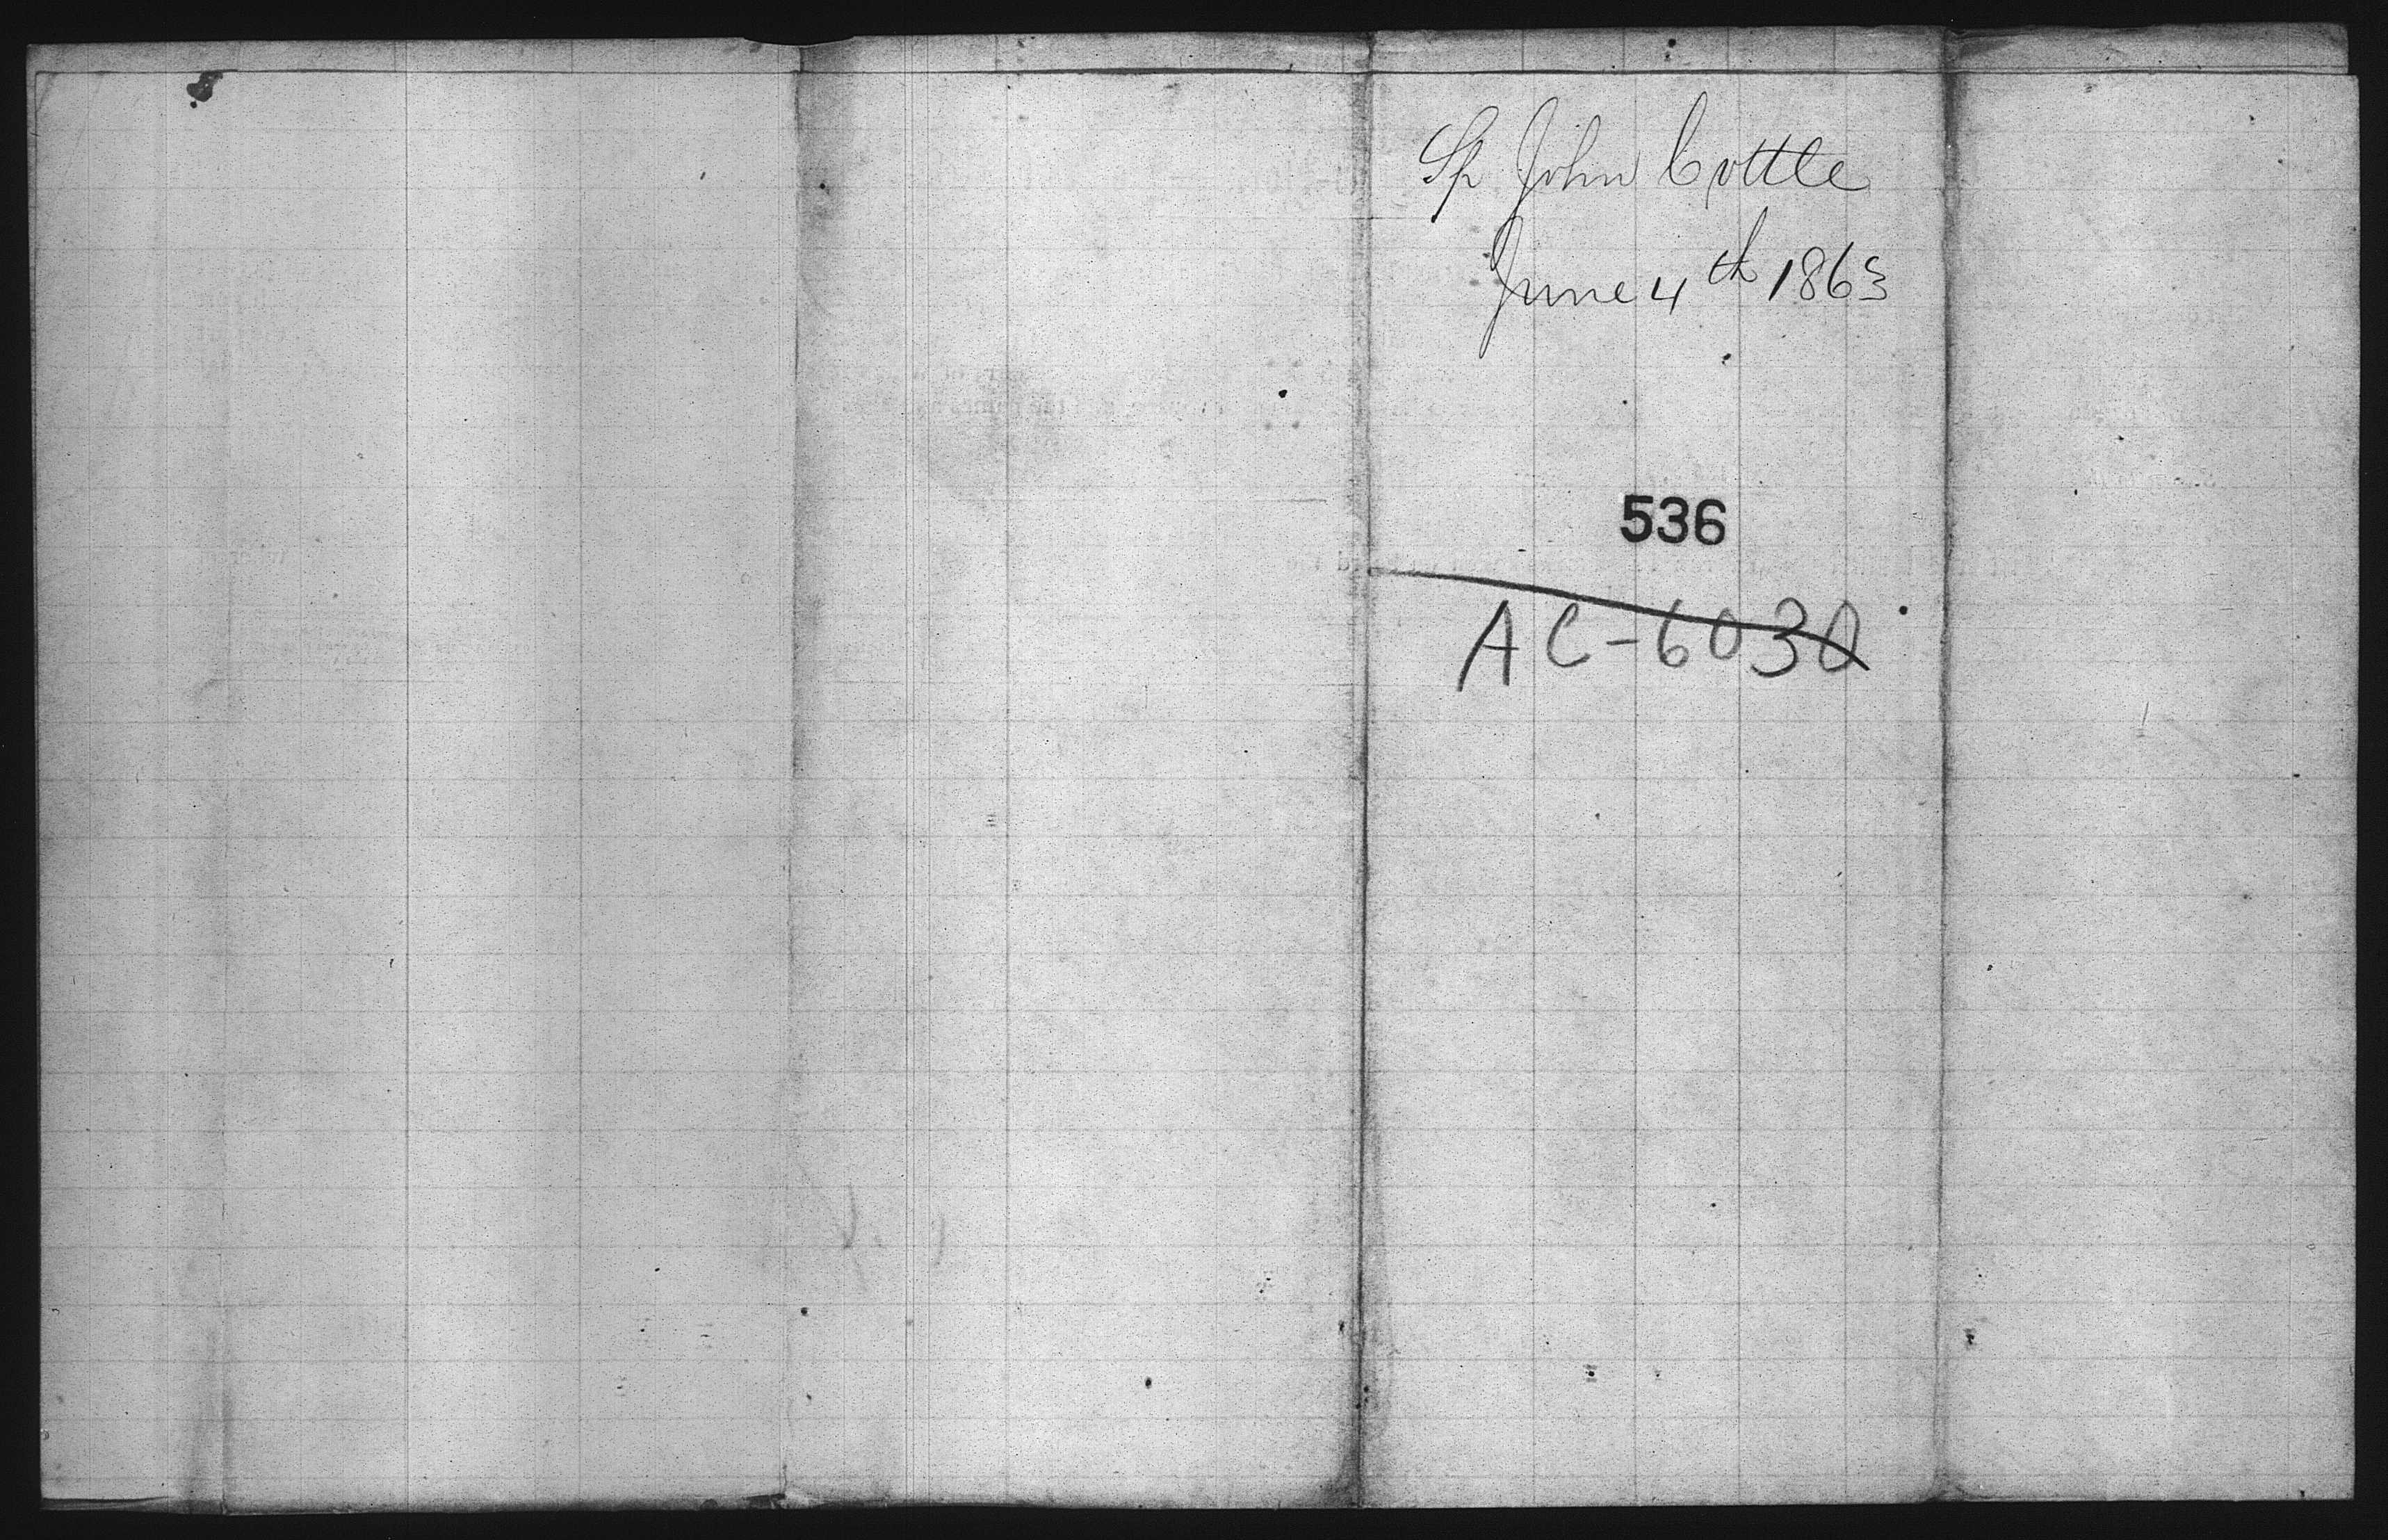 Sp John Cottle
June 4th 1863
536
AC-6030